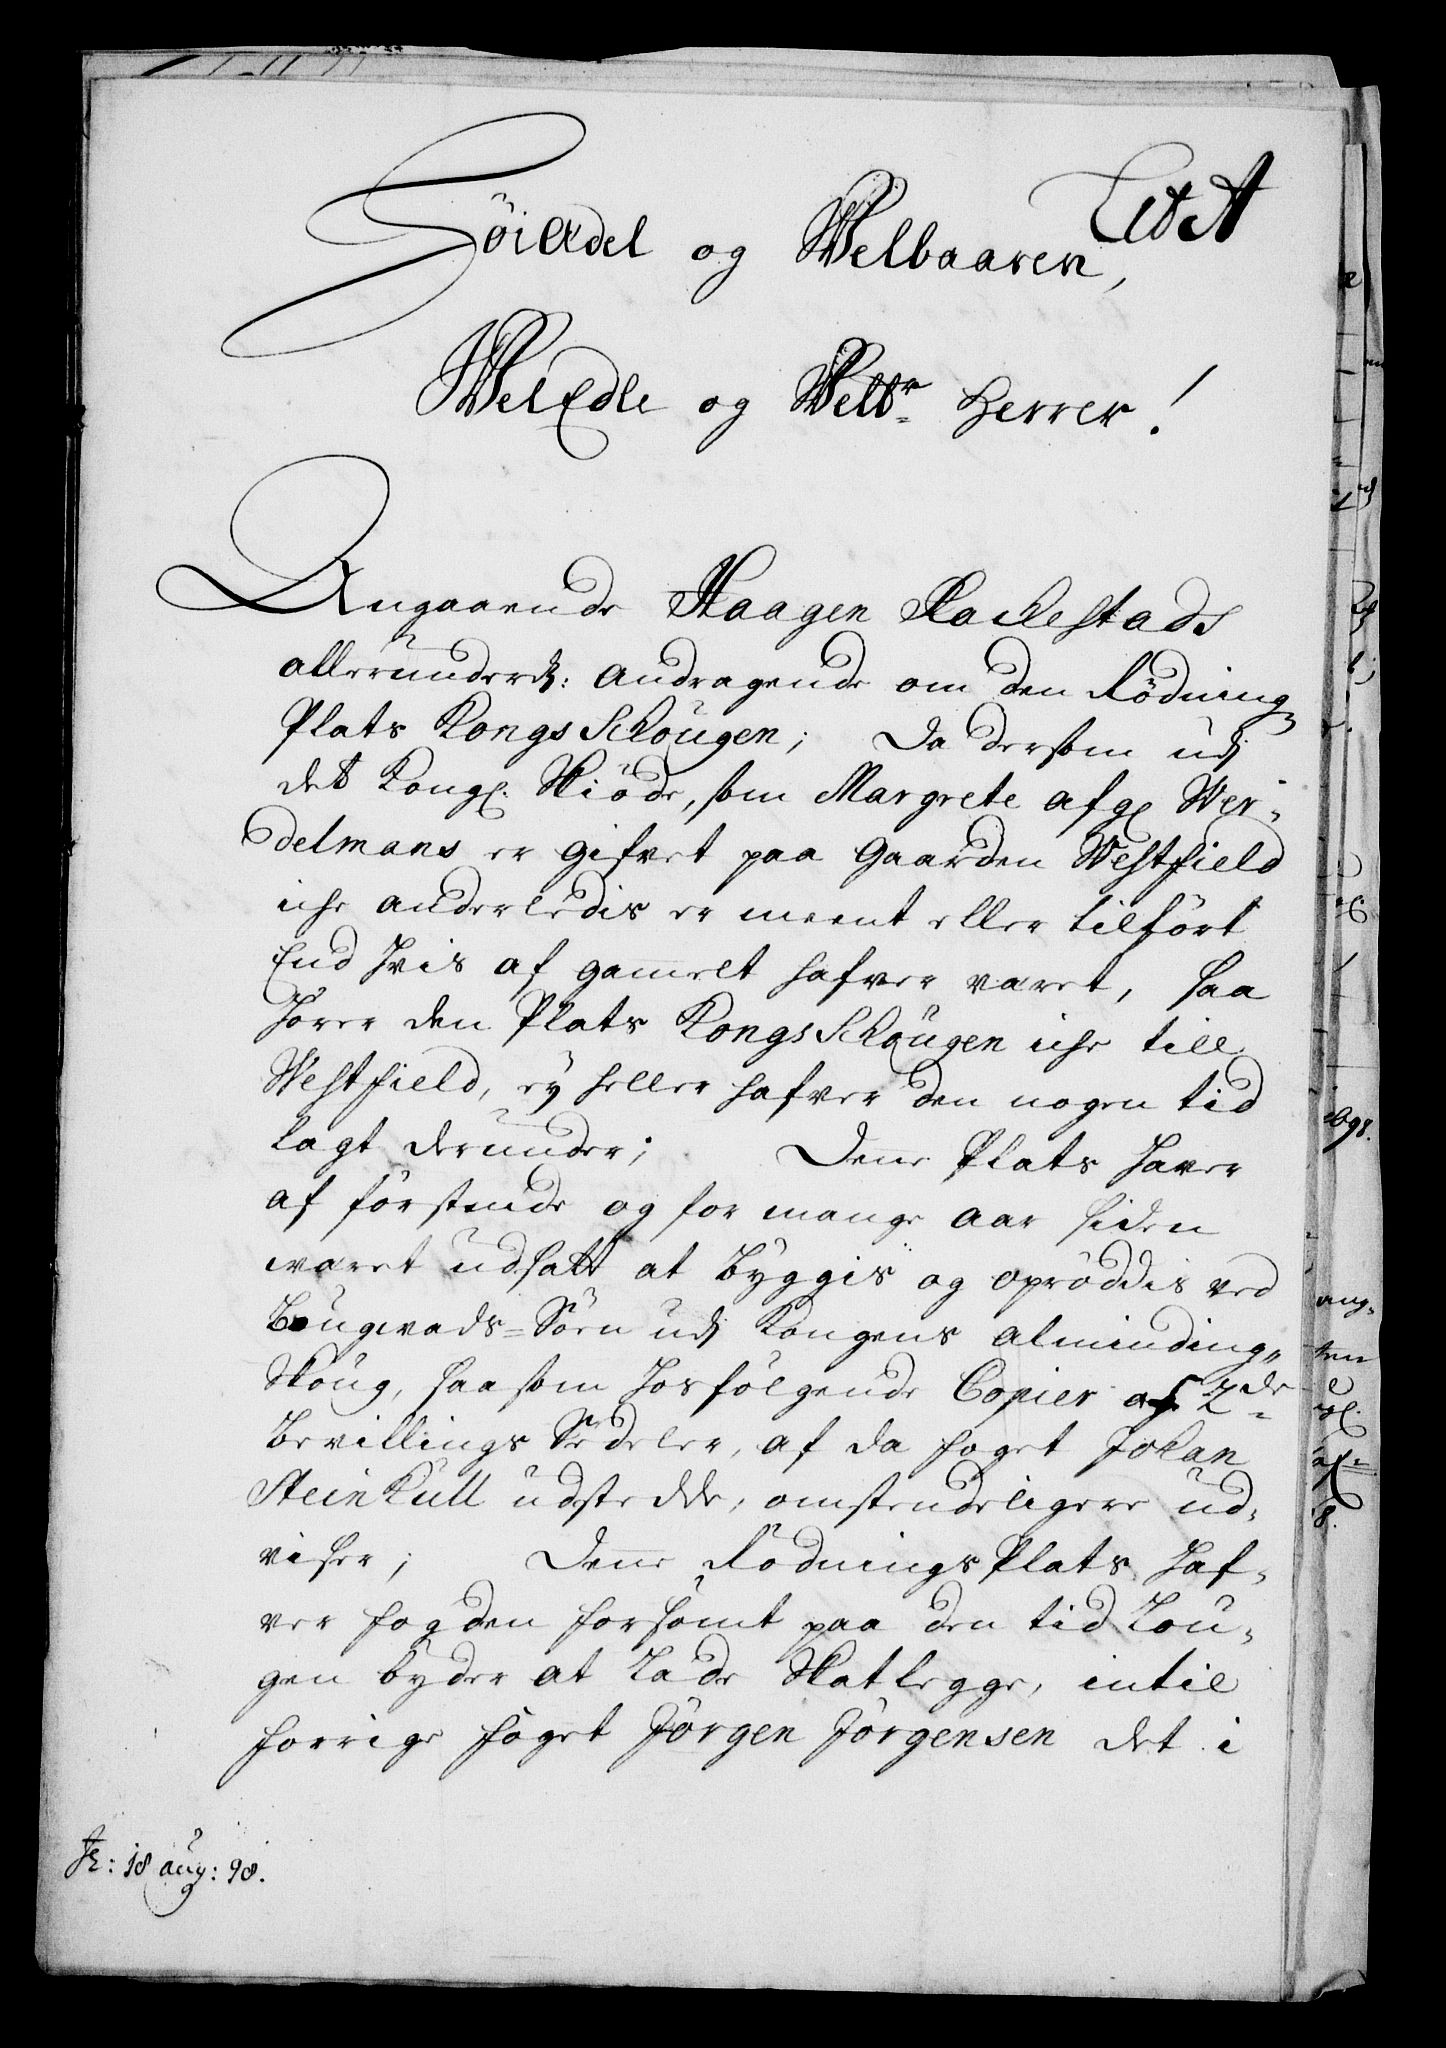 Lit A
Höiædel og Welbaaren,
WelEdle og Welbr. Herrer!
Angaaende Haagen Rachestads
allerunderd: andragende om den Rödnings
Plats KongsSchougen; Da dersom udj
det Kongl. Skiöde, som Margrete afgl Wer-
delmans er gifvet paa gaarden Westfield
iche anderledis er meent eller tilfört
End Hvis af gammelt hafver varet, saa
Hörer den Plats KongsSchougen iche till
Westfield, ey heller hafver den nogen tid
lagt derunder; Denne Plats Haver
af förstende og for mange aar siden
waret udsatt at byggis og oprøddis ved
Lougvads-Söen udj Kongens alminding,,
Skoug, saasom Hosfölgende Copier af 2de
Bevillings Sedeler, af da foget Johan
SteinKull udstedde, omstendeligere ud-
viser; Denne Rödnings Plats Haf-
ver fogden forsömt paa den tid Lou-
gen byder at lade Skatlegge, intil
forrige foget Jörgen Jörgensen det i
18 aug: 98.